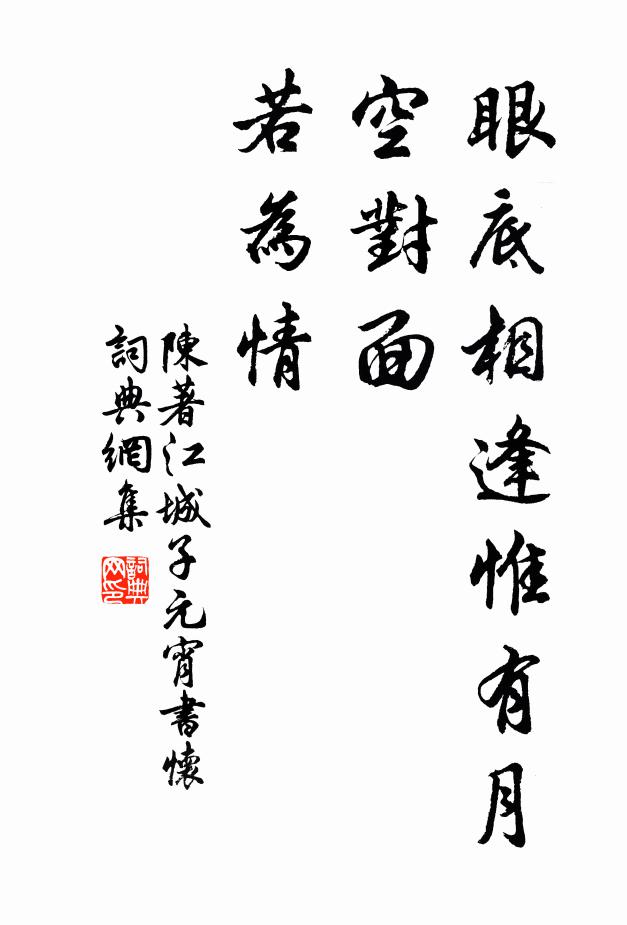 眼底相逢惟有月
空對面
若為情
陳著江城子元宵書懷
詞典網集
詞典网印